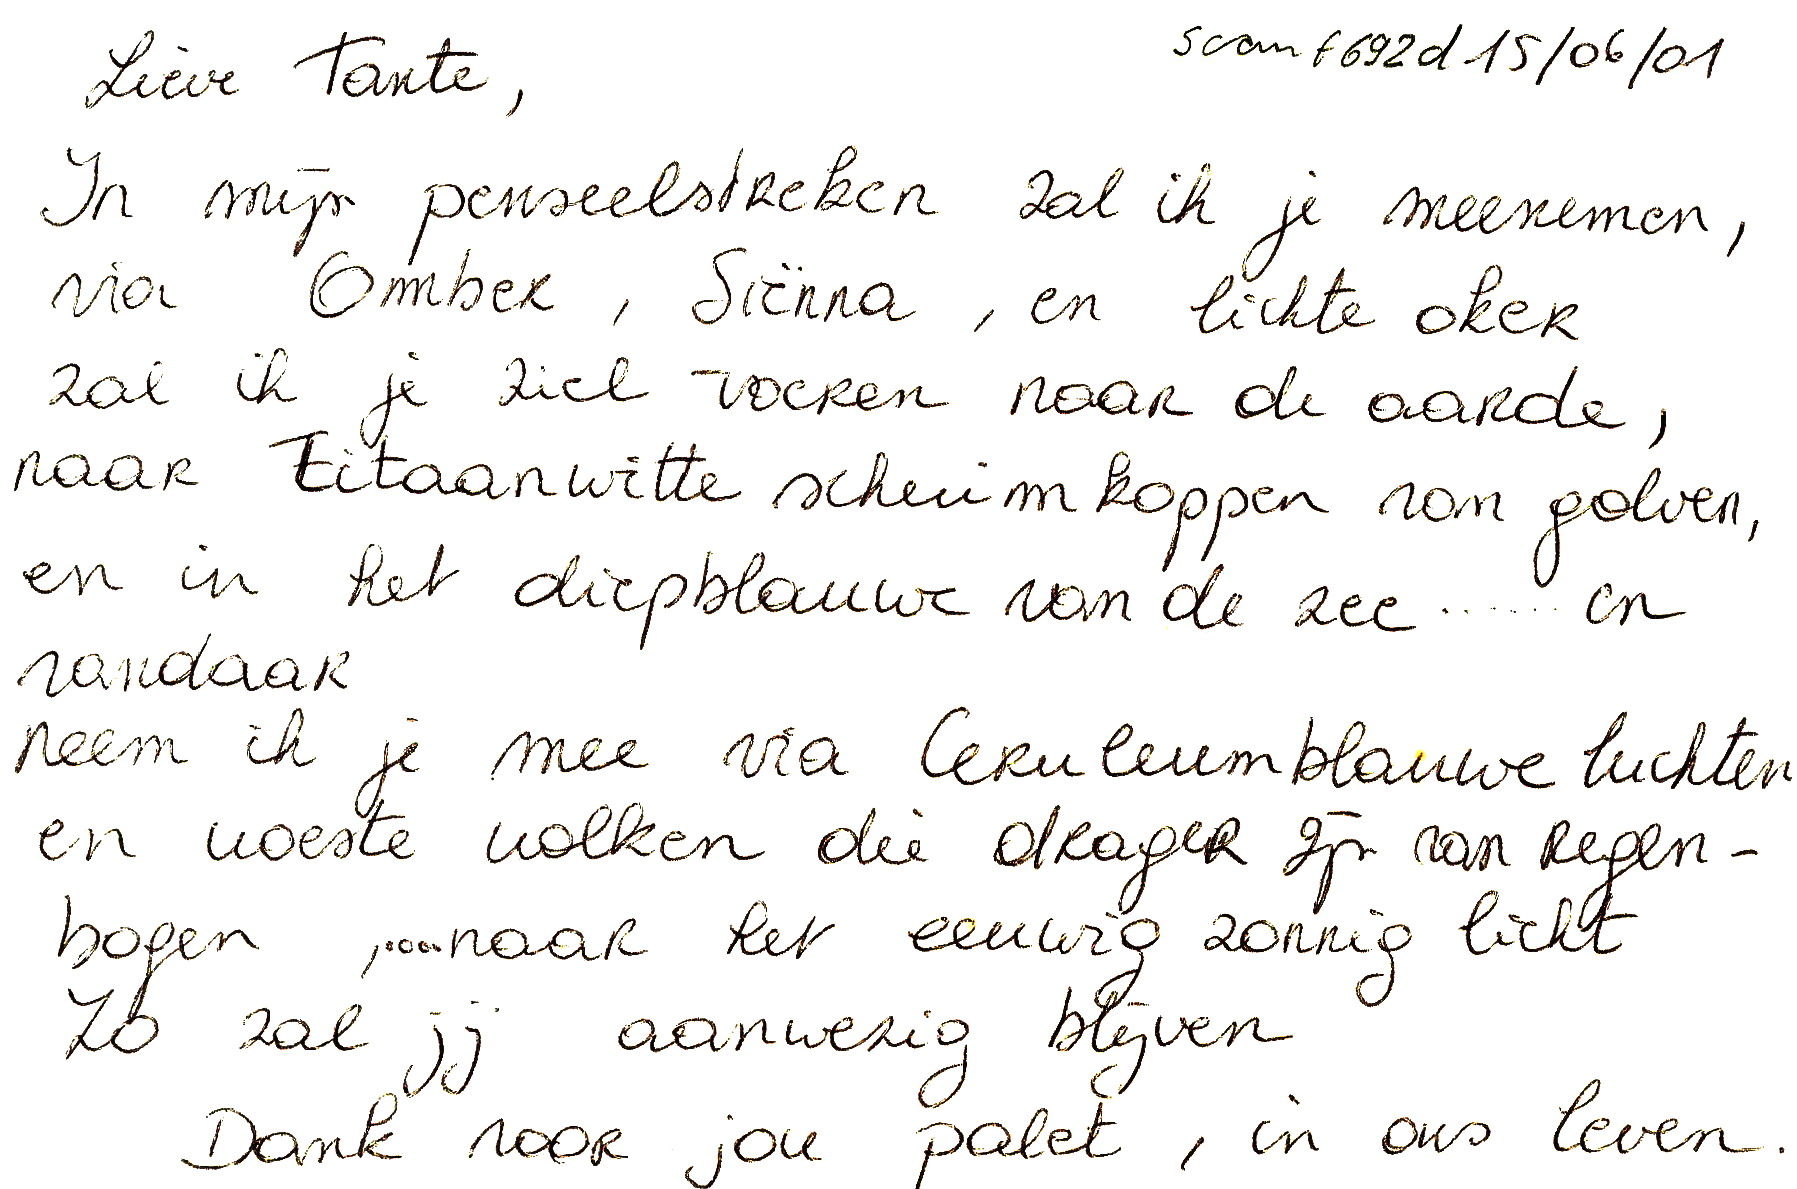 scanf692d 15/06/01
Lieve Tante,
In mijn penseelstreken zal ik je meenemen,
via Omber, Siënna, en lichte oker
zal ik je ziel voeren naar de aarde,
naar Titaanwitte schuimkoppen van golven,
en in het diepblauwe van de zee ...... en
vandaar
neem ik je mee via Ceruleumblauwe luchten
en woeste wolken die drager zijn van regen-
bogen ,....naar het eeuwig zonnig licht
Zo zal jij aanwezig blijven
Dank voor jou palet, in ons leven.